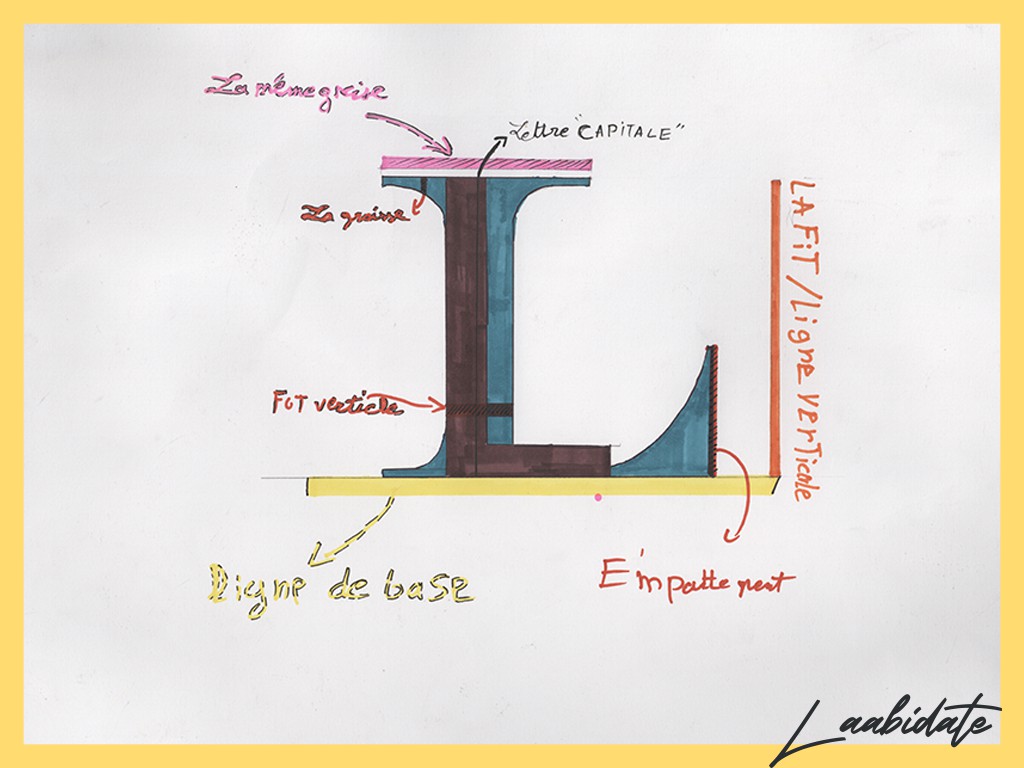 La même graise
Lettre "CAPITALE"
La graisse
LA FiT / Ligne verticale
FUT verticle
Ligne de base
Empattement
Laabidate